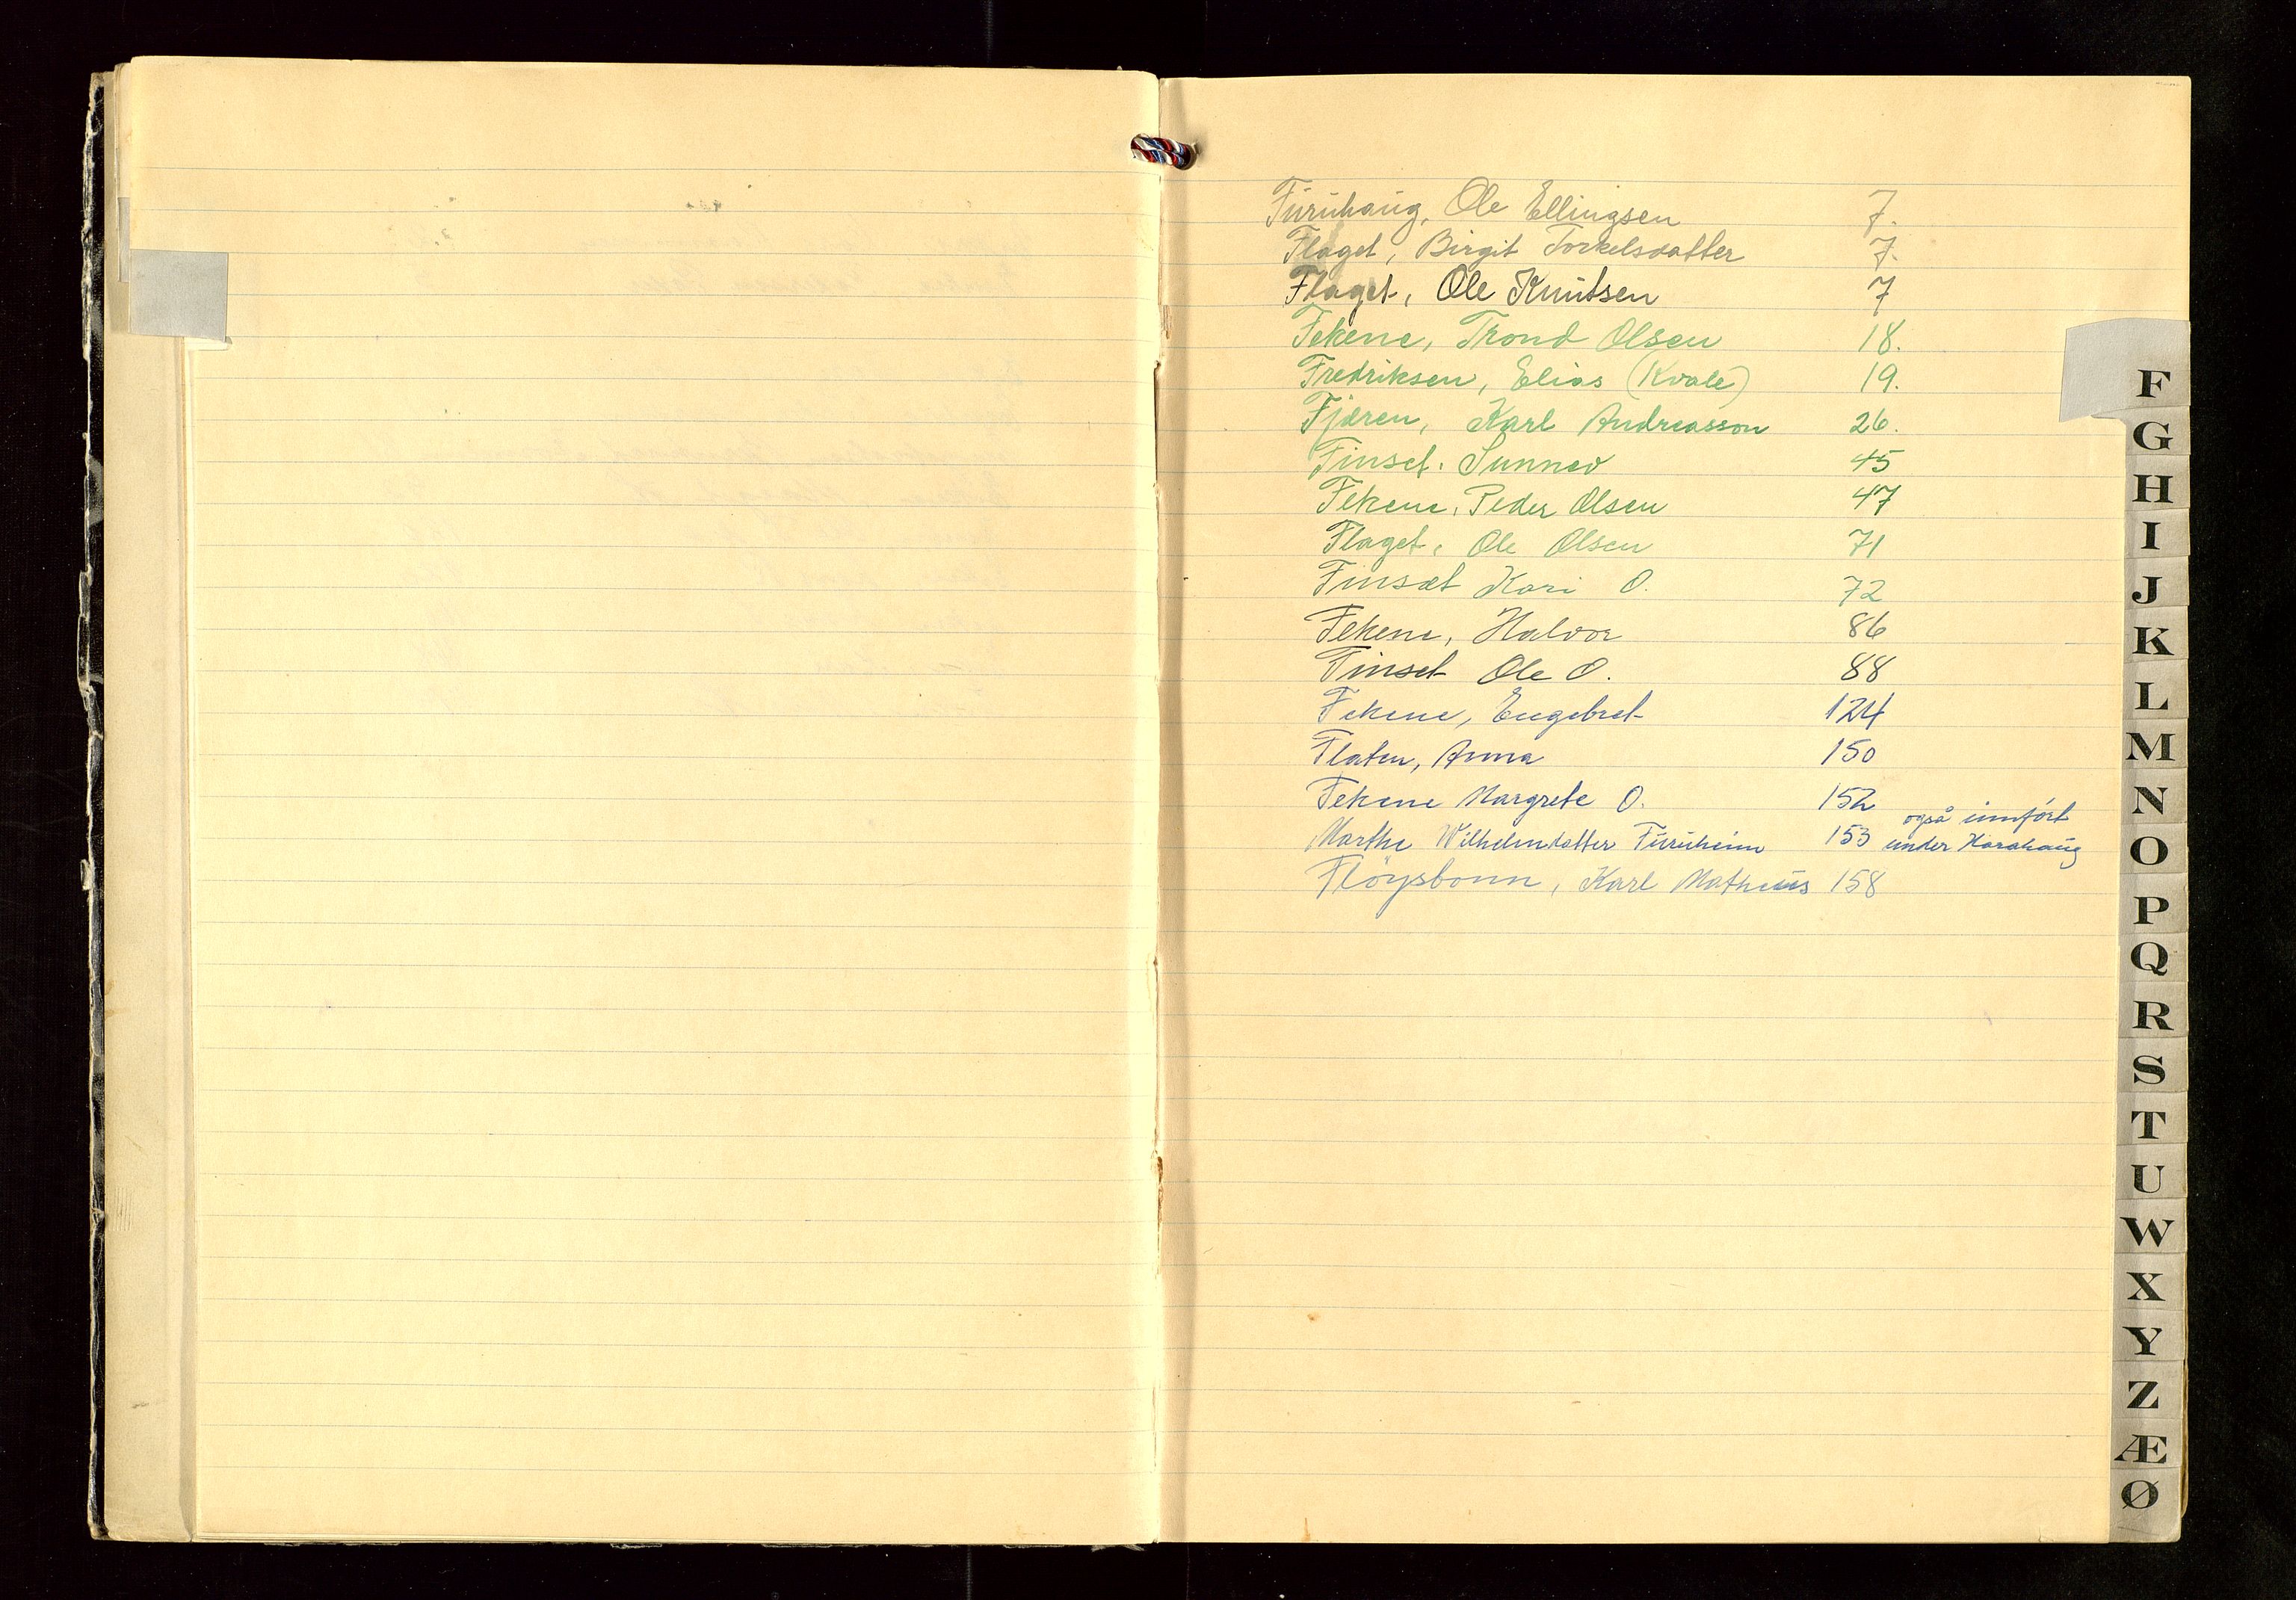 Furuhaug, Ole Ellingsen 7.
Flaget, Birgit Torkelsdatter 7.
Flaget, Ole Knutsen 7
Fekene, Trond Olsen 18.
Fredriksen, Elias (Kvale) 19.
Fjæren, Karl Andreasson 26.
Finset. Sunnev 45
Fekene, Peder Olsen 47
Flaget, Ole Olsen 71
Finset Kari O. 72
Fekene, Halvor 86
Finset Ole O. 88
Fekene, Engebret 124
Flaten, Anna 150
Fekene Margrete O. 152
også innført
Marthe Wilhelmdatter Furuheim 153 under Harahaug
Fløysbonn, Karl Matheus 158
F
G
H
I
J
K
L
M
N
O
P
Q
R
S
T
U
W
X
Y
Z
Æ
Ø